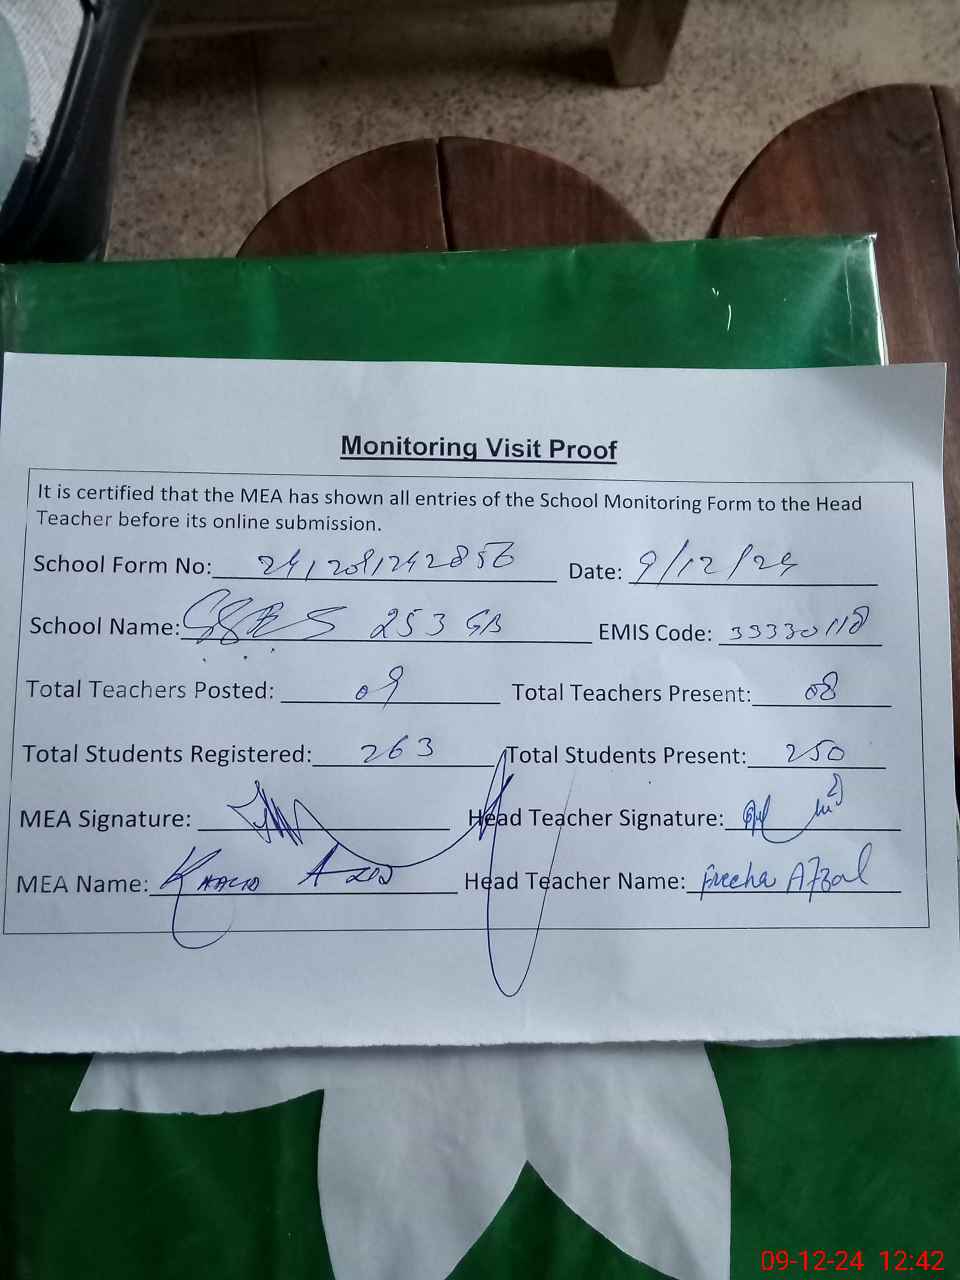 Monitoring Visit Proof
It is certified that the MEA has shown all entries of the School Monitoring Form to the Head
Teacher before its online submission.
School Form No: Date: 9/12/24
School Name: 253 GB EMIS Code: 33330118
Total Teachers Posted: 09 Total Teachers Present: 08
Total Students Registered: 263 Total Students Present: 250
MEA Signature: Head Teacher Signature:
MEA Name: Khalid Aziz Head Teacher Name: Afzal
09-12-24 12:42